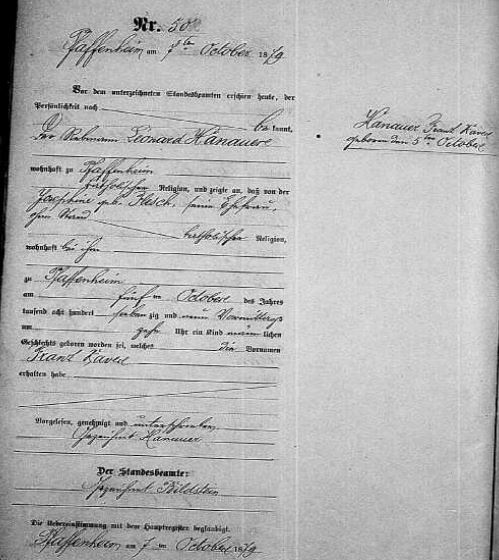 Nr. 50
Pfaffenheim am 7ten October 1879
Vor dem unterzeichneten Standesbeamten erschien heute, der
Persönlichkeit nach be kannt,
Der Leonard Hanauer
wohnhaft zu Pfaffenheim
katholischer Religion, und zeigte an, daß von der
Josephine geb. Flesch, seine Ehefrau,
ohne Stand
katholischer Religion,
wohnhaft bei ihm
zu Pfaffenheim
am fünften October des Jahres
tausend acht hundert sieben zig und neun Vormittags
um zehn Uhr ein Kind männ lichen
Geschlechts geboren worden sei, welches die Vornamen
Franz Xaver
erhalten habe
Vorgelesen, genehmigt und unterschrieben
Gezeichnet Hanauer
Der Standesbeamte:
Gezeichnet Bildstein
Die Uebereinstimmung mit dem Hauptregister beglaubigt.
Pfaffenheim am 7 ten October 1879
Hanauer Franz Xaver
geboren den 5ten October